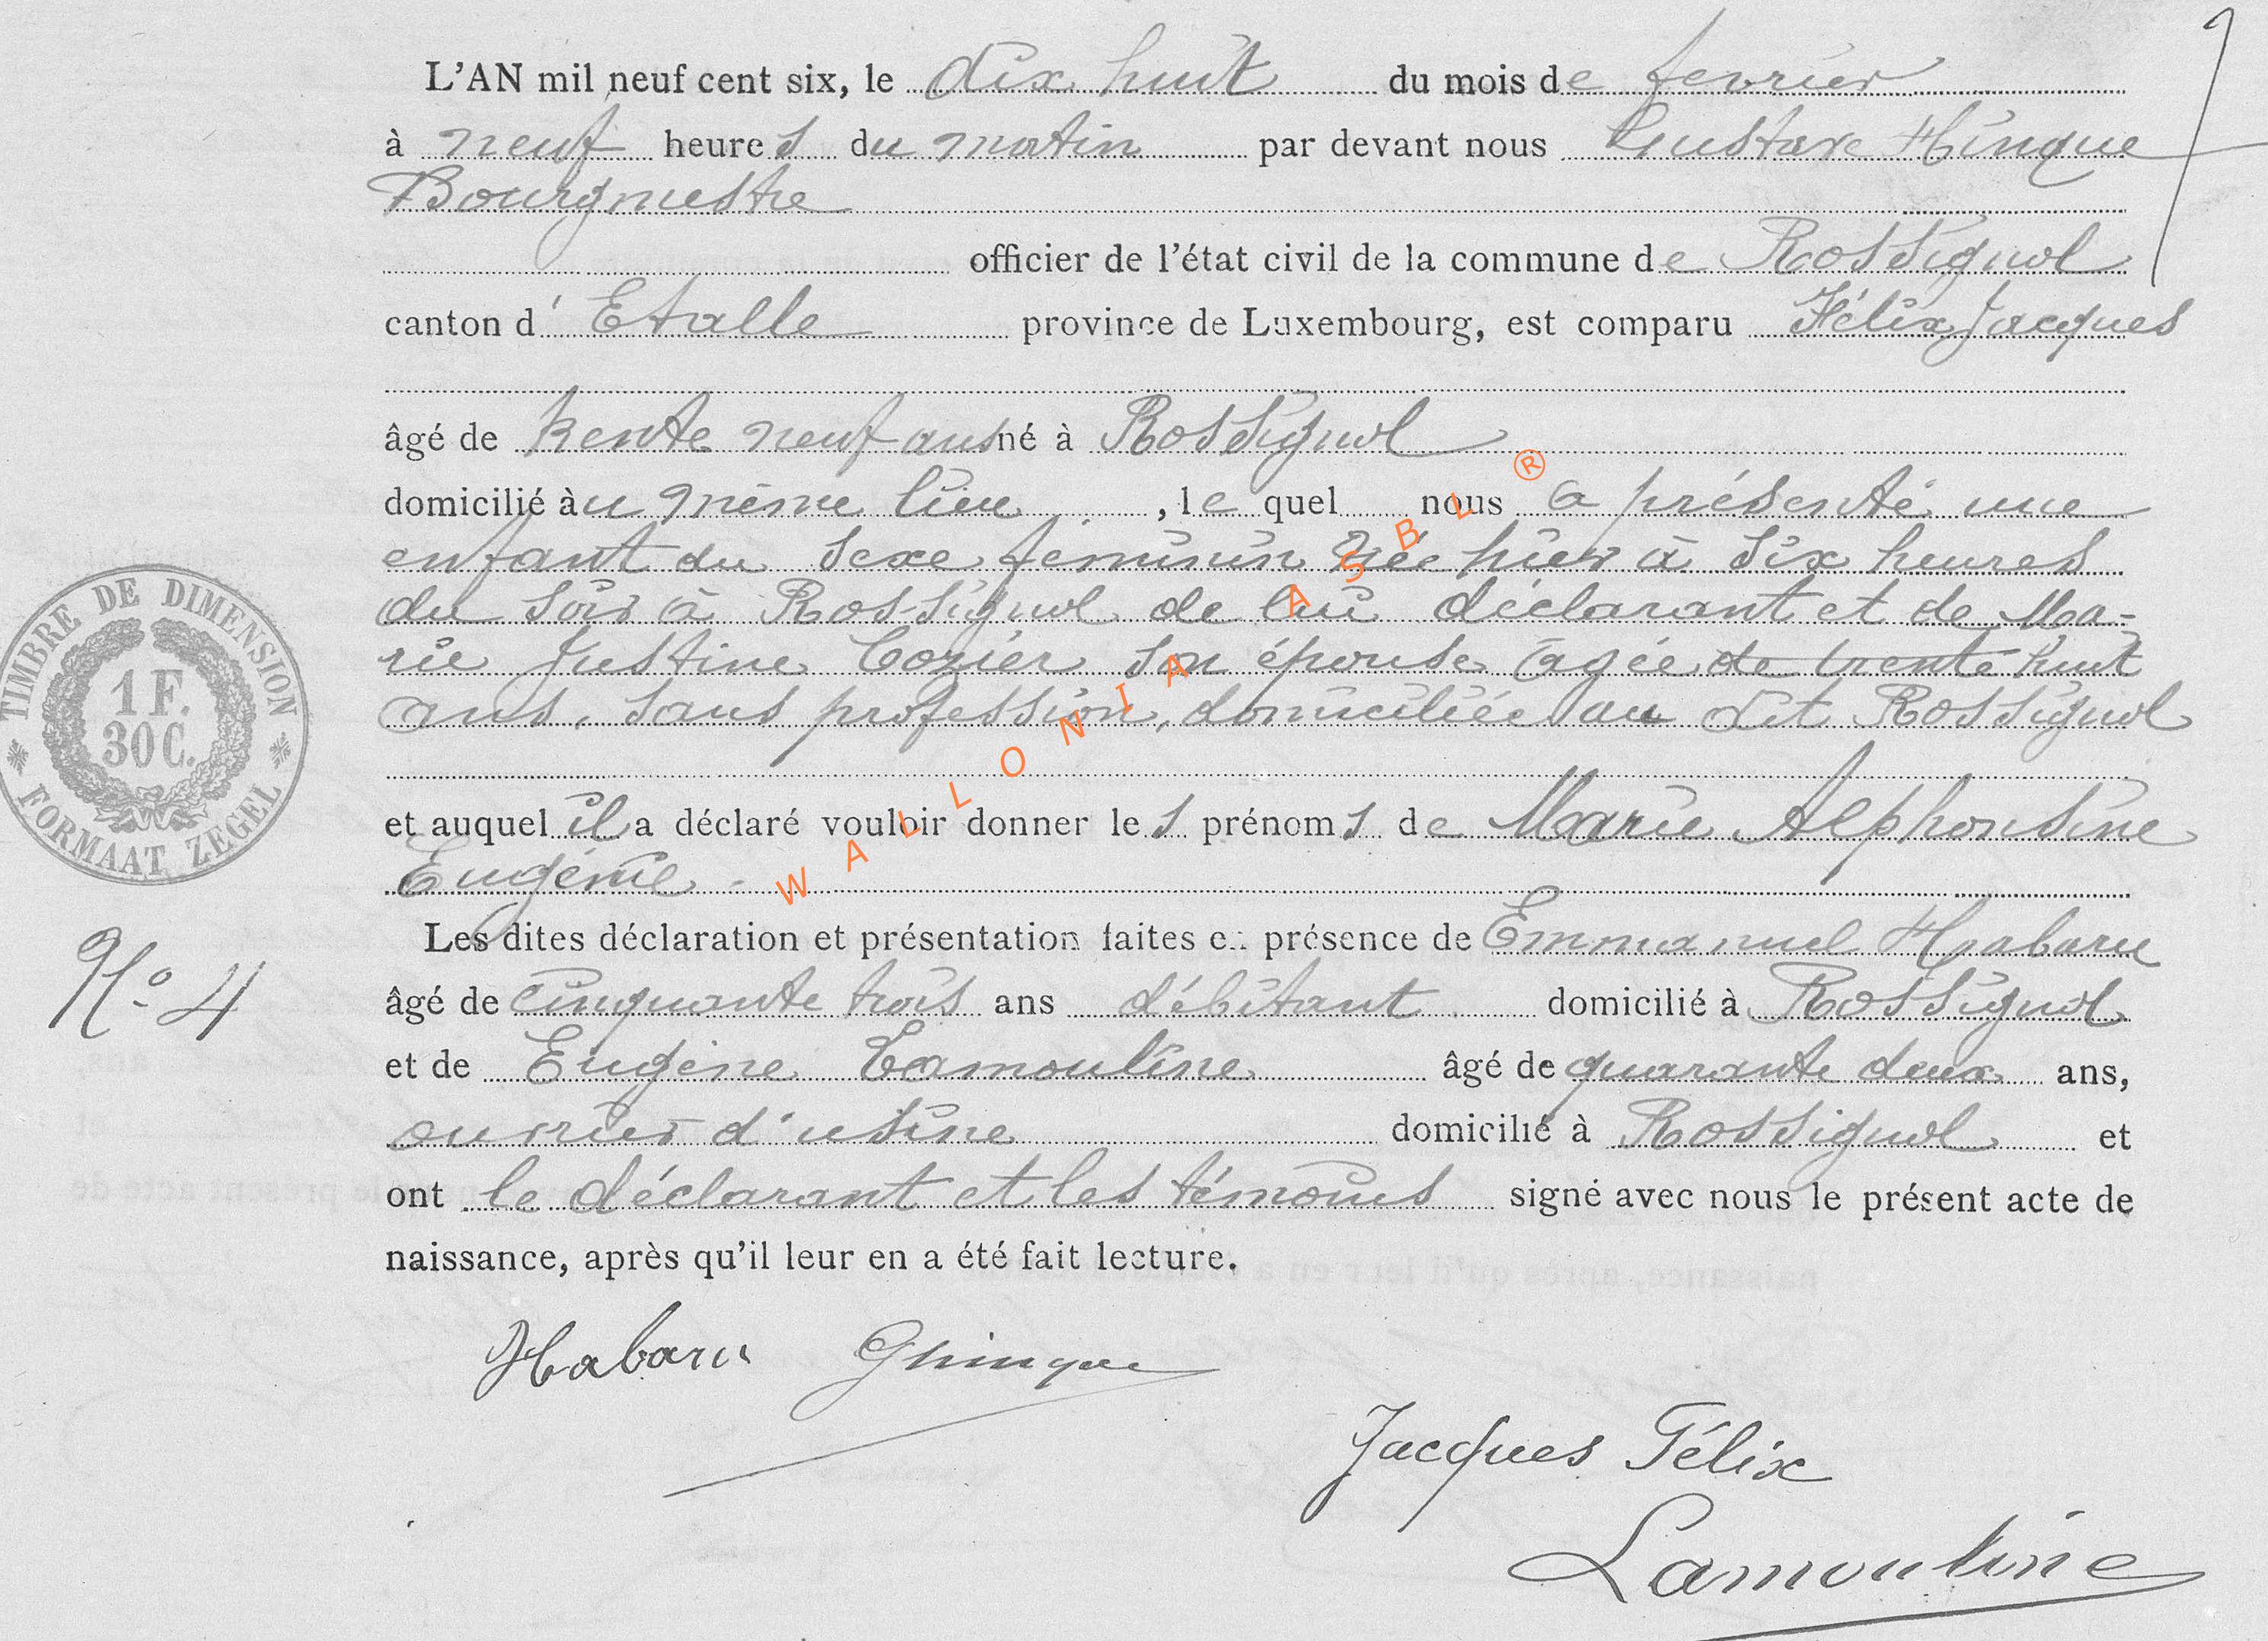 L'AN mil neuf cent six, le dix huit du mois de fevrier
à neuf heures du matin par devant nous Gustave Hinque
Bourgmestre
officier de l'état civil de la commune de Rossignol
canton d'Etalle province de Luxembourg, est comparu Félix Jacques
âgé de trente neuf ans né à Rossignol
domicilié àu même lieu, le quel nous a présenté une
enfant du sexe feminin née hier à six heures
du soir à Rossignol de lui déclarant et de Ma-
rie Justine Cozier son épouse âgée de trente huit
ans, sans profession, domiciliée au dit Rossignol
et auquel il a déclaré vouloir donner les prénoms de Marie Alphonsine
Eugénie
Les dites déclaration et présentation faites en présence de Emmanuel Habaru
âgé de cinquante trois ans débitant domicilié à Rossignol
et de Eugène Lamouline âgé de quarante deux ans,
ouvrier d'usine domicilié à Rossignol et
ont le déclarant et les témoins signé avec nous le présent acte de
naissance, après qu'il leur en a été fait lecture.
Habaru GHinque
Jacques Félix
Lamouline
TIMBRE DE DIMENSION
1 F.
30 C.
FORMAAT ZEGEL
No 4
WALLONIA ASBL ®